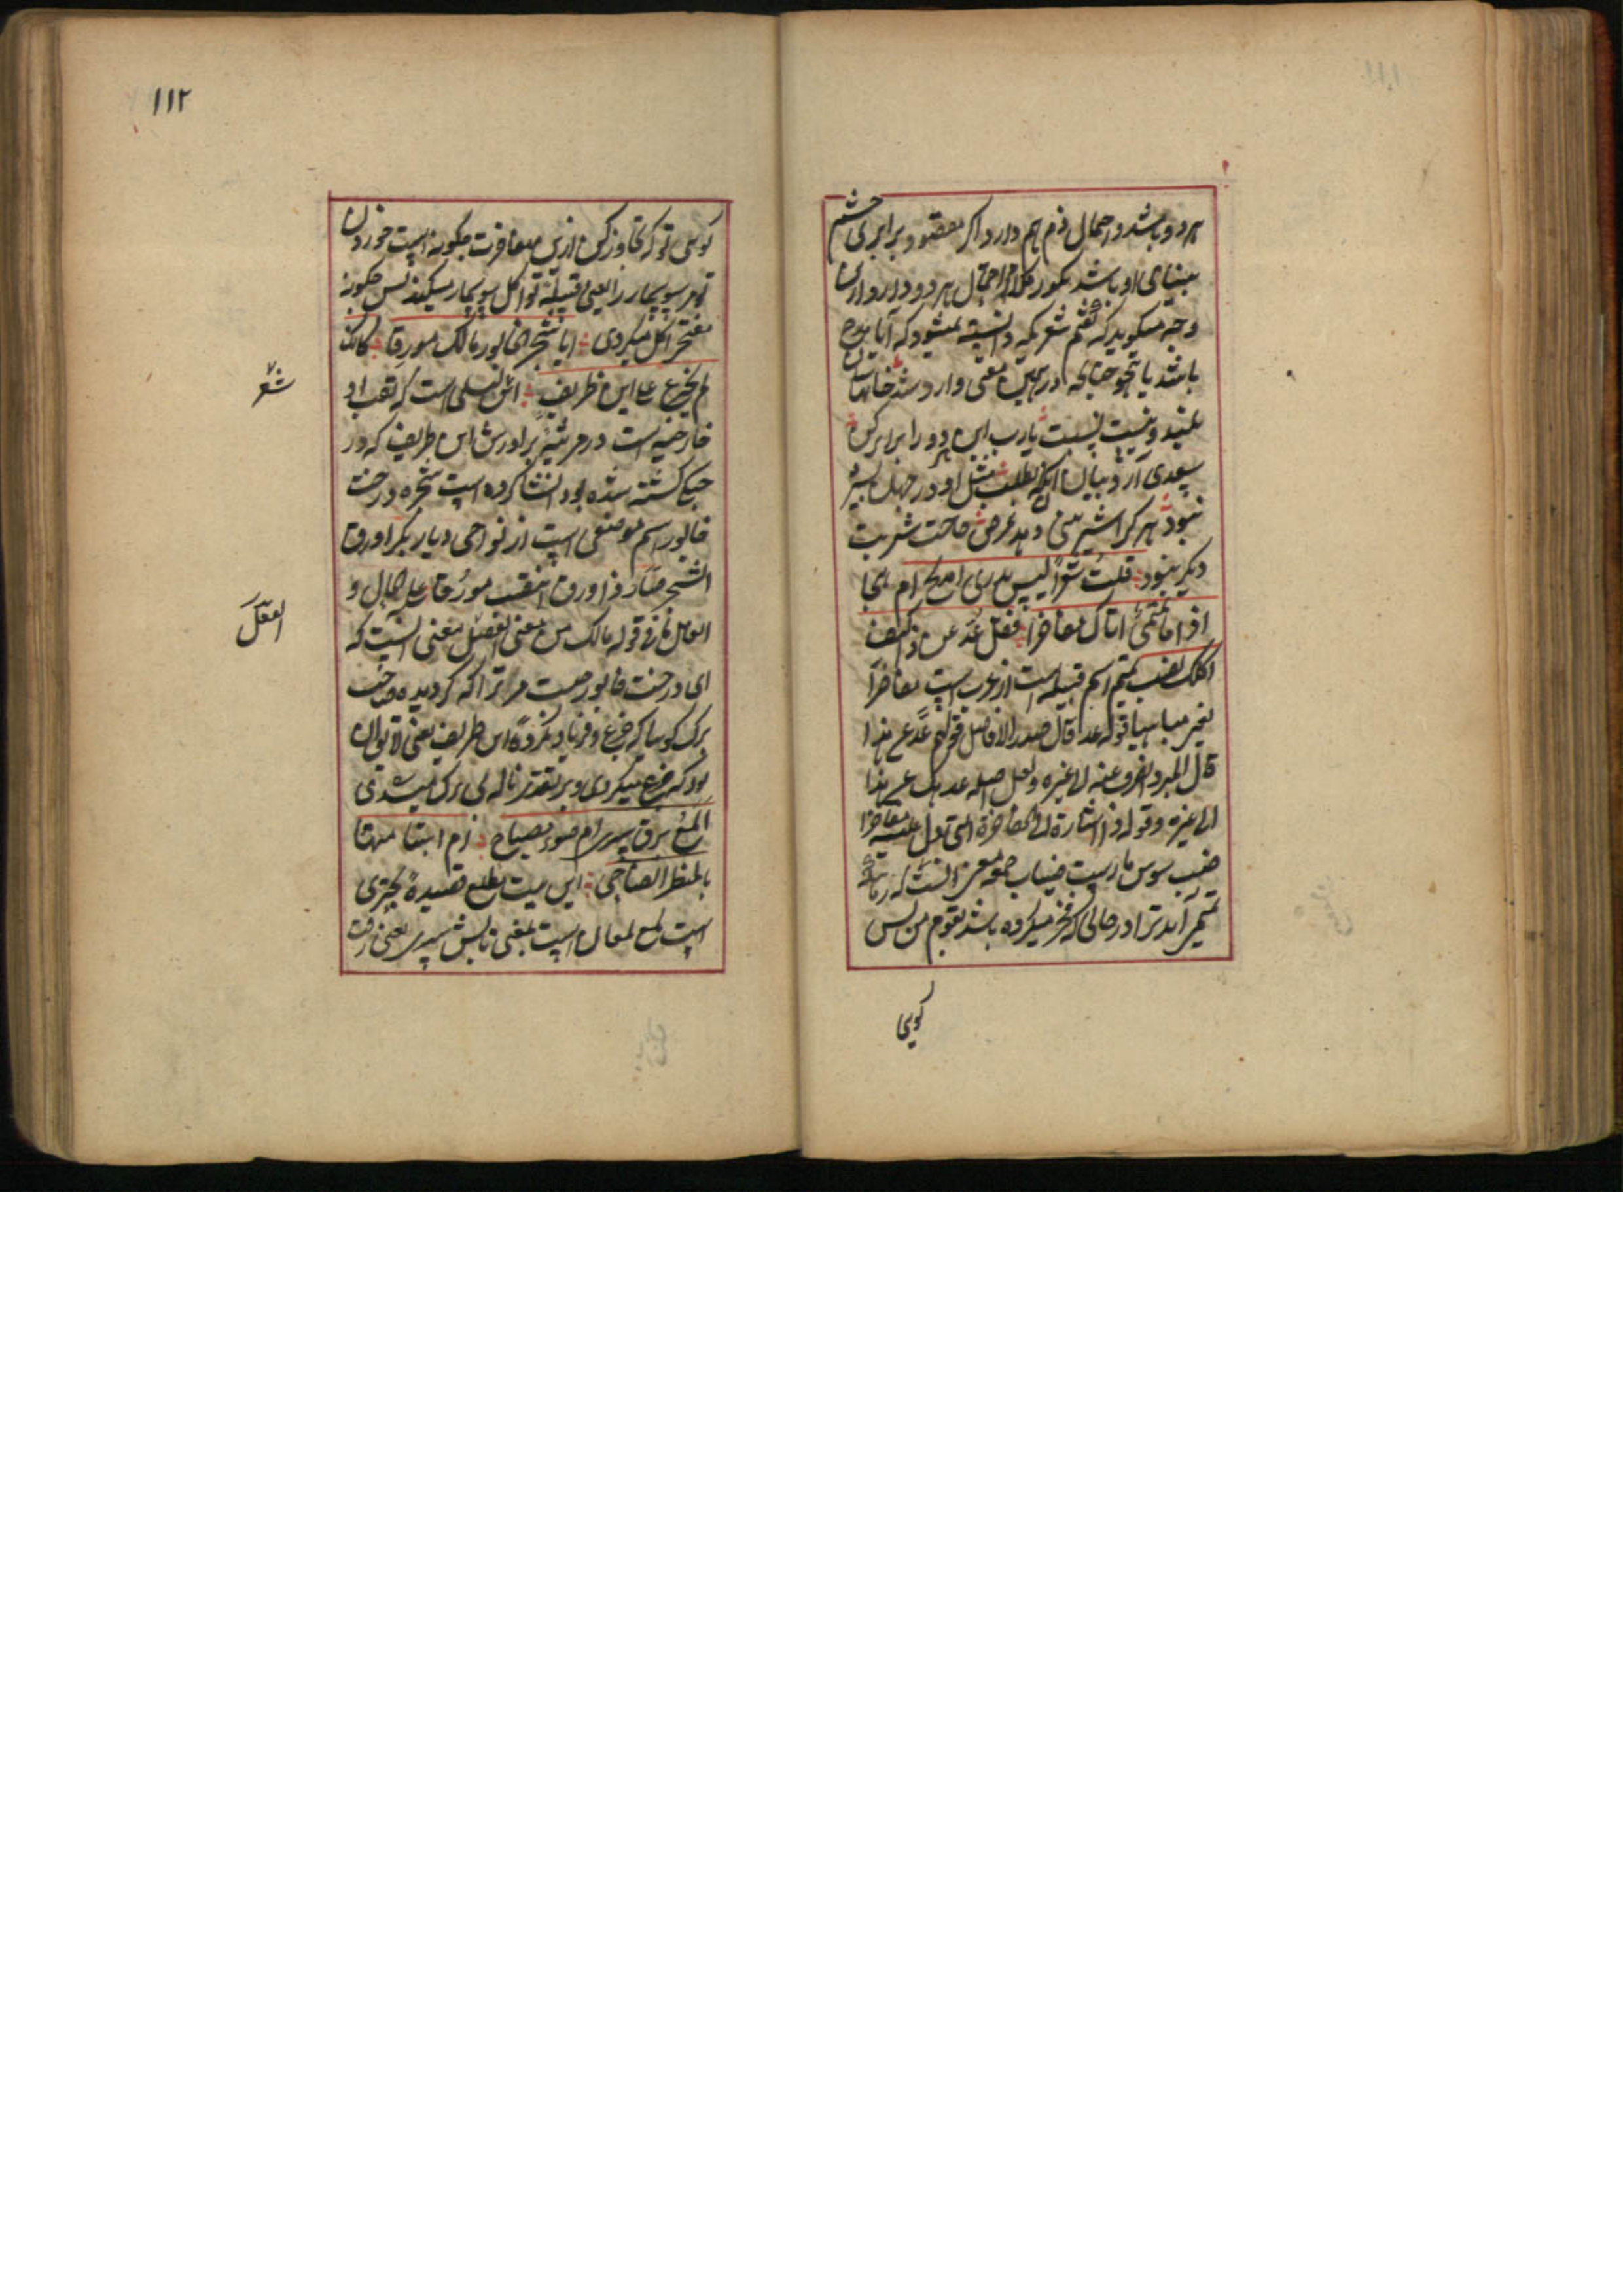 هر دو باشد و احتمال ذم هم دارد اگر مقصود برابری چشم
بینای او باشد بکور کلام احتمال هر دو دارد و ازین
وجه میگوید که گفتم شعریکه دانسته نمیشود که آیا مدح
باشد یا هجو چنانچه در همین معنی وارد شد
یارب این هر دو را برابر کن
سعدی آرد بیان آنکه بطلب مثل او در جهان بشر
نبود هر کرا شیر
دیگر نبود قلت شعرا لیس یدری امدیح ام هجا
اذا ما تمیمی اتاک مفاخرا فقل عد عن ذا کیف
اکلک لضب تمیم اسم قبیله است از عرب است مفاخرا
یعنی مباهیا قوله عد قال صدر الافاضل قولهم عد عن هذا
قال المبرد اصرف عنه لا غیره ولعل اصله عد همک عن هذا
الی غیره وقوله ذا اشارة الی المفاخرة التی تدل علیه مفاخرا
ضب سوسمار است ضباب جمع معنی آنست که هرگاه
تمیمی آید ترا در حالی که فخر میکرده باشد بقوم من پس
گویی
۱۱۲
گویی تو که تجاوز کن ازین مفاخرت چگونه است خوردن
تو مر سوسمار را یعنی قبیله تو اکل سوسمار میکنند پس چگونه
مفتخر اکل میکردی ایا شجر الخابور مالک مورقا کانک
شعر
لم تجزع علی ابن طریف این لیلی است که لقب او
خارجیه است در مرثیه برادرش ابن طریف که در
جنگ کشته شده بود انشا کرده است شجره درخت
خابور اسم موضعی است از نواحی دیار بکر اورق
الشجر صار ذا ورق انتصب مورقا علی الحال و
العامل فی قوله مالک من معنی الفعل معنی آنست که
الفعل
ای درخت خابور چیست مر ترا که گردیده صاحب
برگ گویا که جزع و فریاد نکرده ابن طریف یعنی لایق آن
بود که جزع میکردی و بر تقدیر ناله بی برگ میشدی
المع برق سری ام ضوء مصباح ام ابتسامتها
بالمنظر الضاحی این بیت مطلع قصیده بحتری
است لمع لمعان است بمعنی تابش سری یعنی رفت